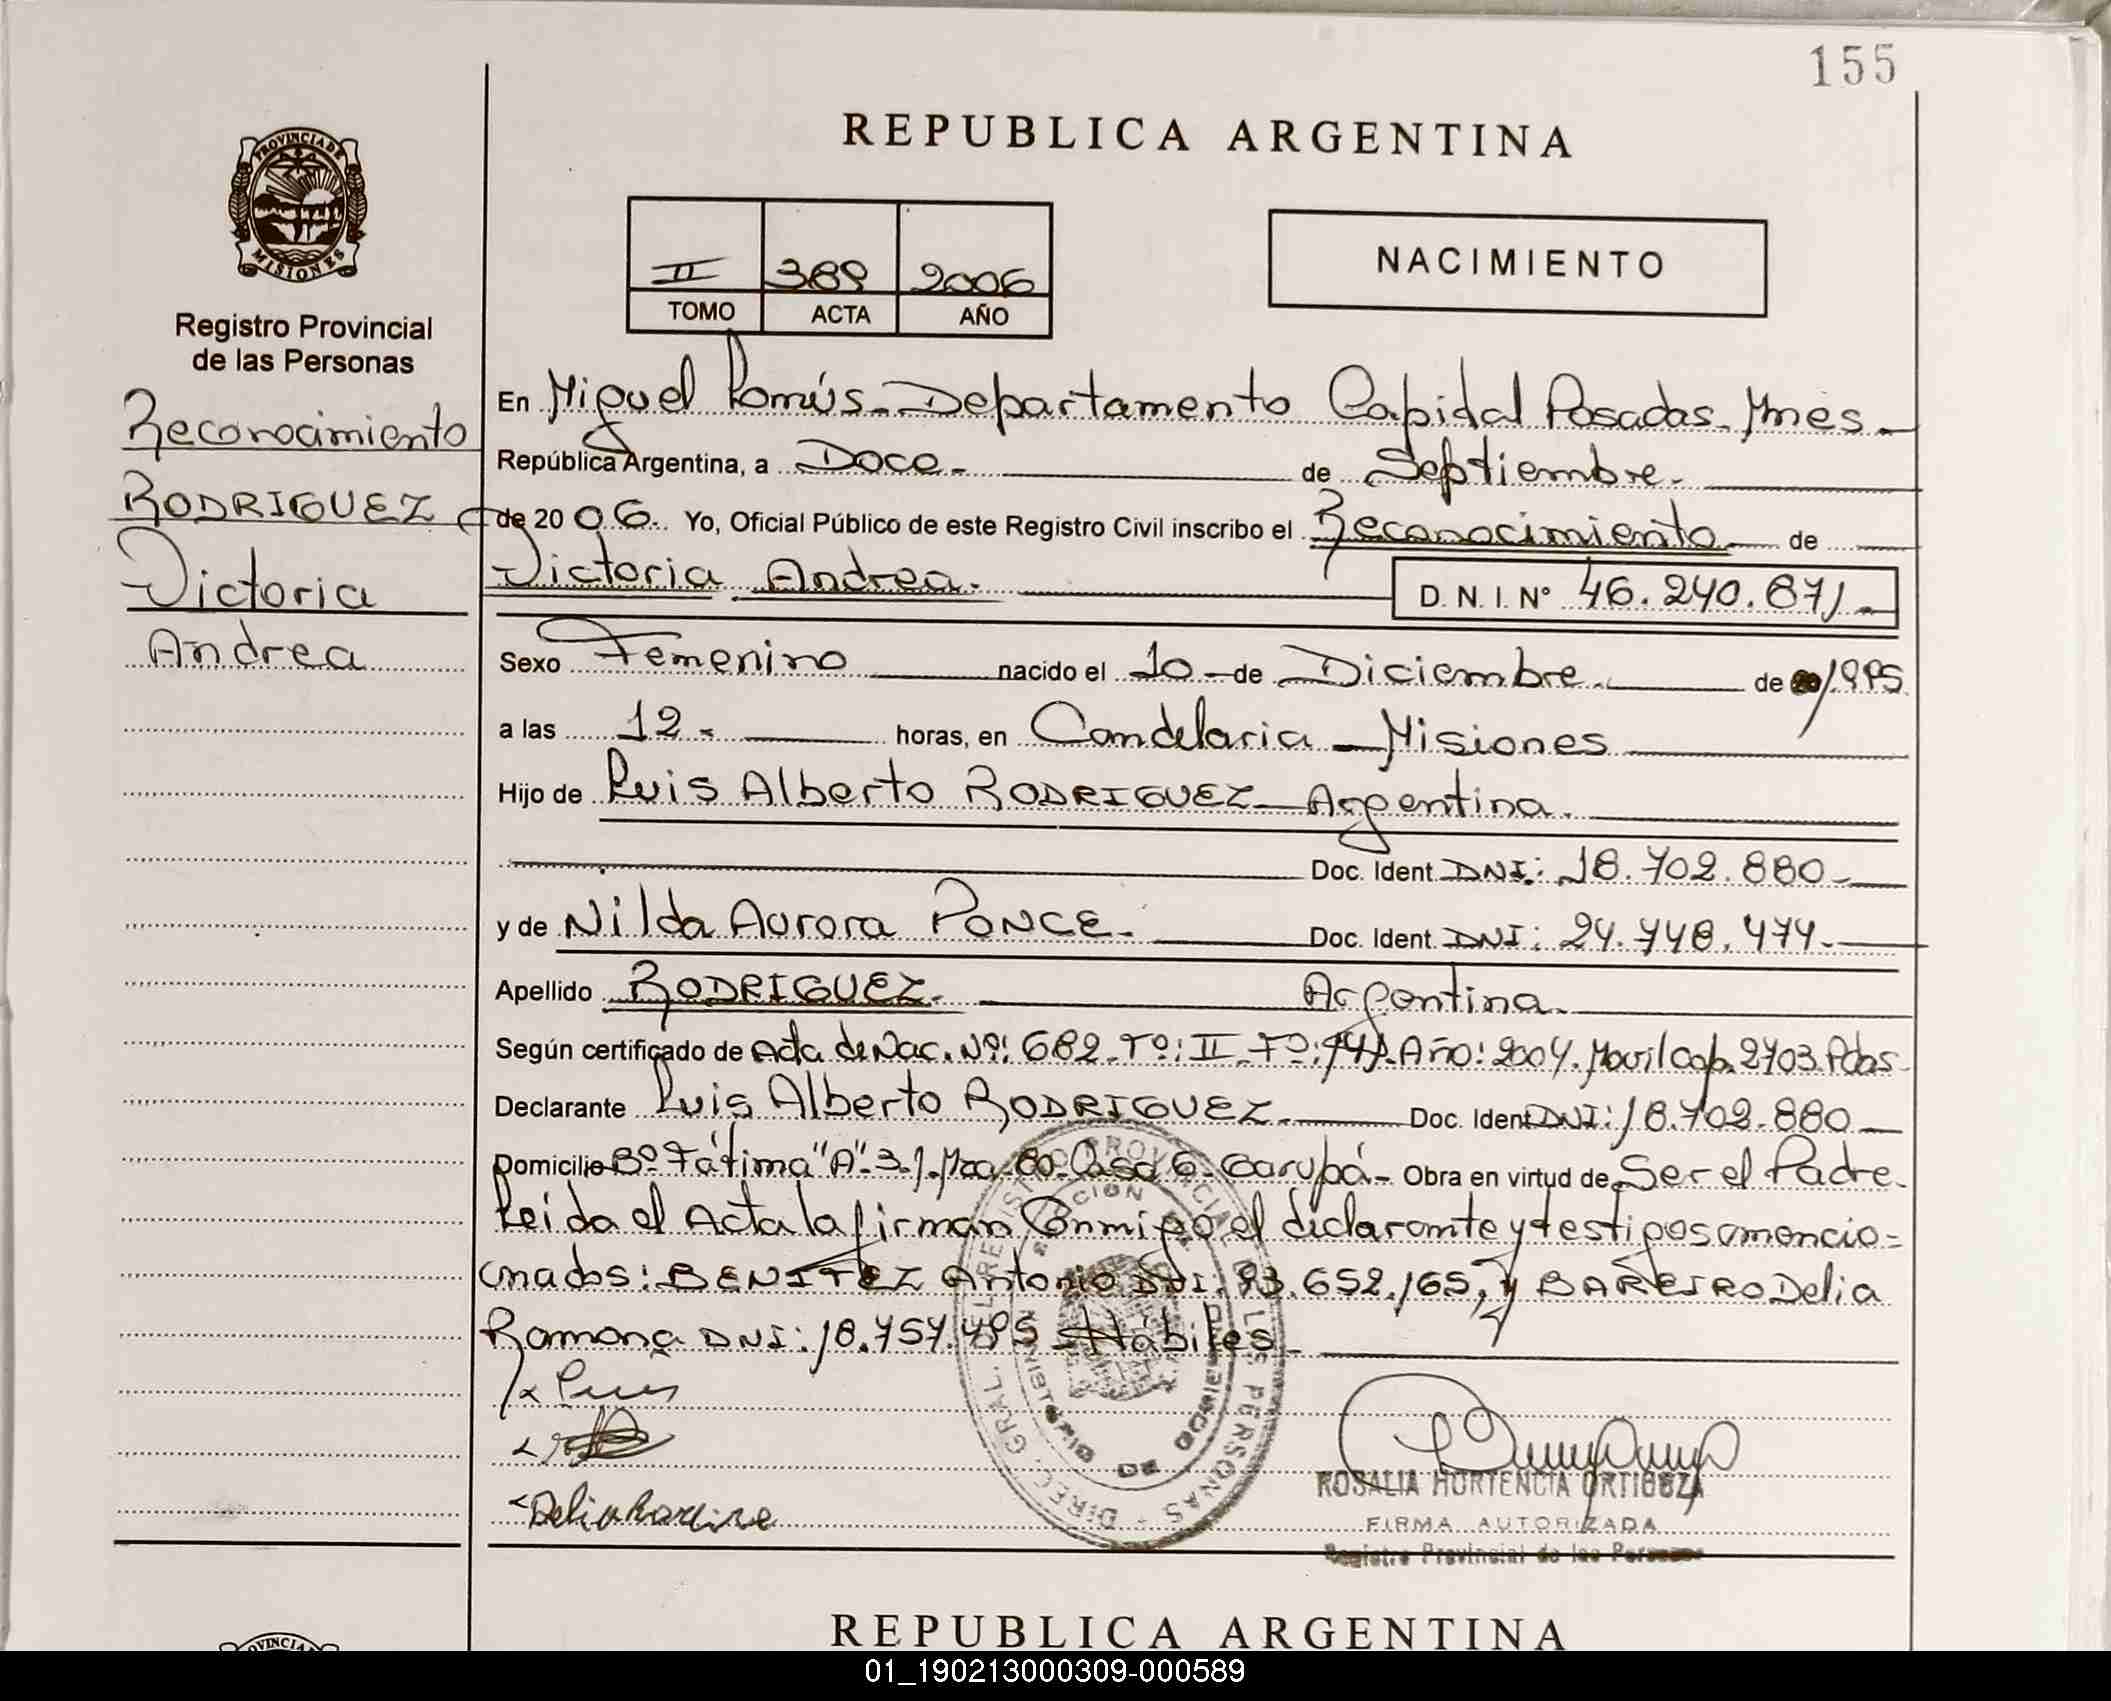 155
PROVINCIA DE
MISIONES
Registro Provincial
de las Personas
Reconocimiento
RODRIGUEZ
Victoria
Andrea
REPUBLICA ARGENTINA
II 389 2006
TOMO ACTA AÑO
NACIMIENTO
En Miguel Lanús - Departamento Capital Posadas - Mnes -
República Argentina, a Doce - de Septiembre -
de 20 06. Yo, Oficial Público de este Registro Civil inscribo el Reconocimiento de
Victoria Andrea. D. N. I. N° 46.240.871 -
Sexo Femenino nacido el 10 - de Diciembre. de 1995
a las 12 - horas, en Candelaria - Misiones
Hijo de Luis Alberto RODRIGUEZ - Argentina.
Doc. Ident. DNI: 18.702.880 -
y de Nilda Aurora PONCE. Doc. Ident. DNI: 24.748.474 -
Apellido RODRIGUEZ. Argentina.
Según certificado de Acta de Nac. Nº: 682 - Tº: II - Fº: Año: 2004. Movil Cap. 2703 Pdas
Declarante Luis Alberto RODRIGUEZ. Doc. Ident DNI: 18.702.880
Domicilio Bº Fátima "A" - 3. Casa 6 - Garupá - Obra en virtud de Ser el Padre.
Leida el Acta la firman Conmigo el declarante y testigos a mencio=
nados: BENITEZ Antonio DNI: 93.652.165, y BAREIRO Delia
Ramona DNI: 18.757.495 - Hábiles -
x Luis
Delia Bareiro
DIREC. GRAL. REGISTRO PROVINCIAL DE LAS PERSONAS
ROSALIA HORTENCIA ORTIGOZA
FIRMA AUTORIZADA
Registro Provincial de las Personas
REPUBLICA ARGENTINA
01_190213000309-000589